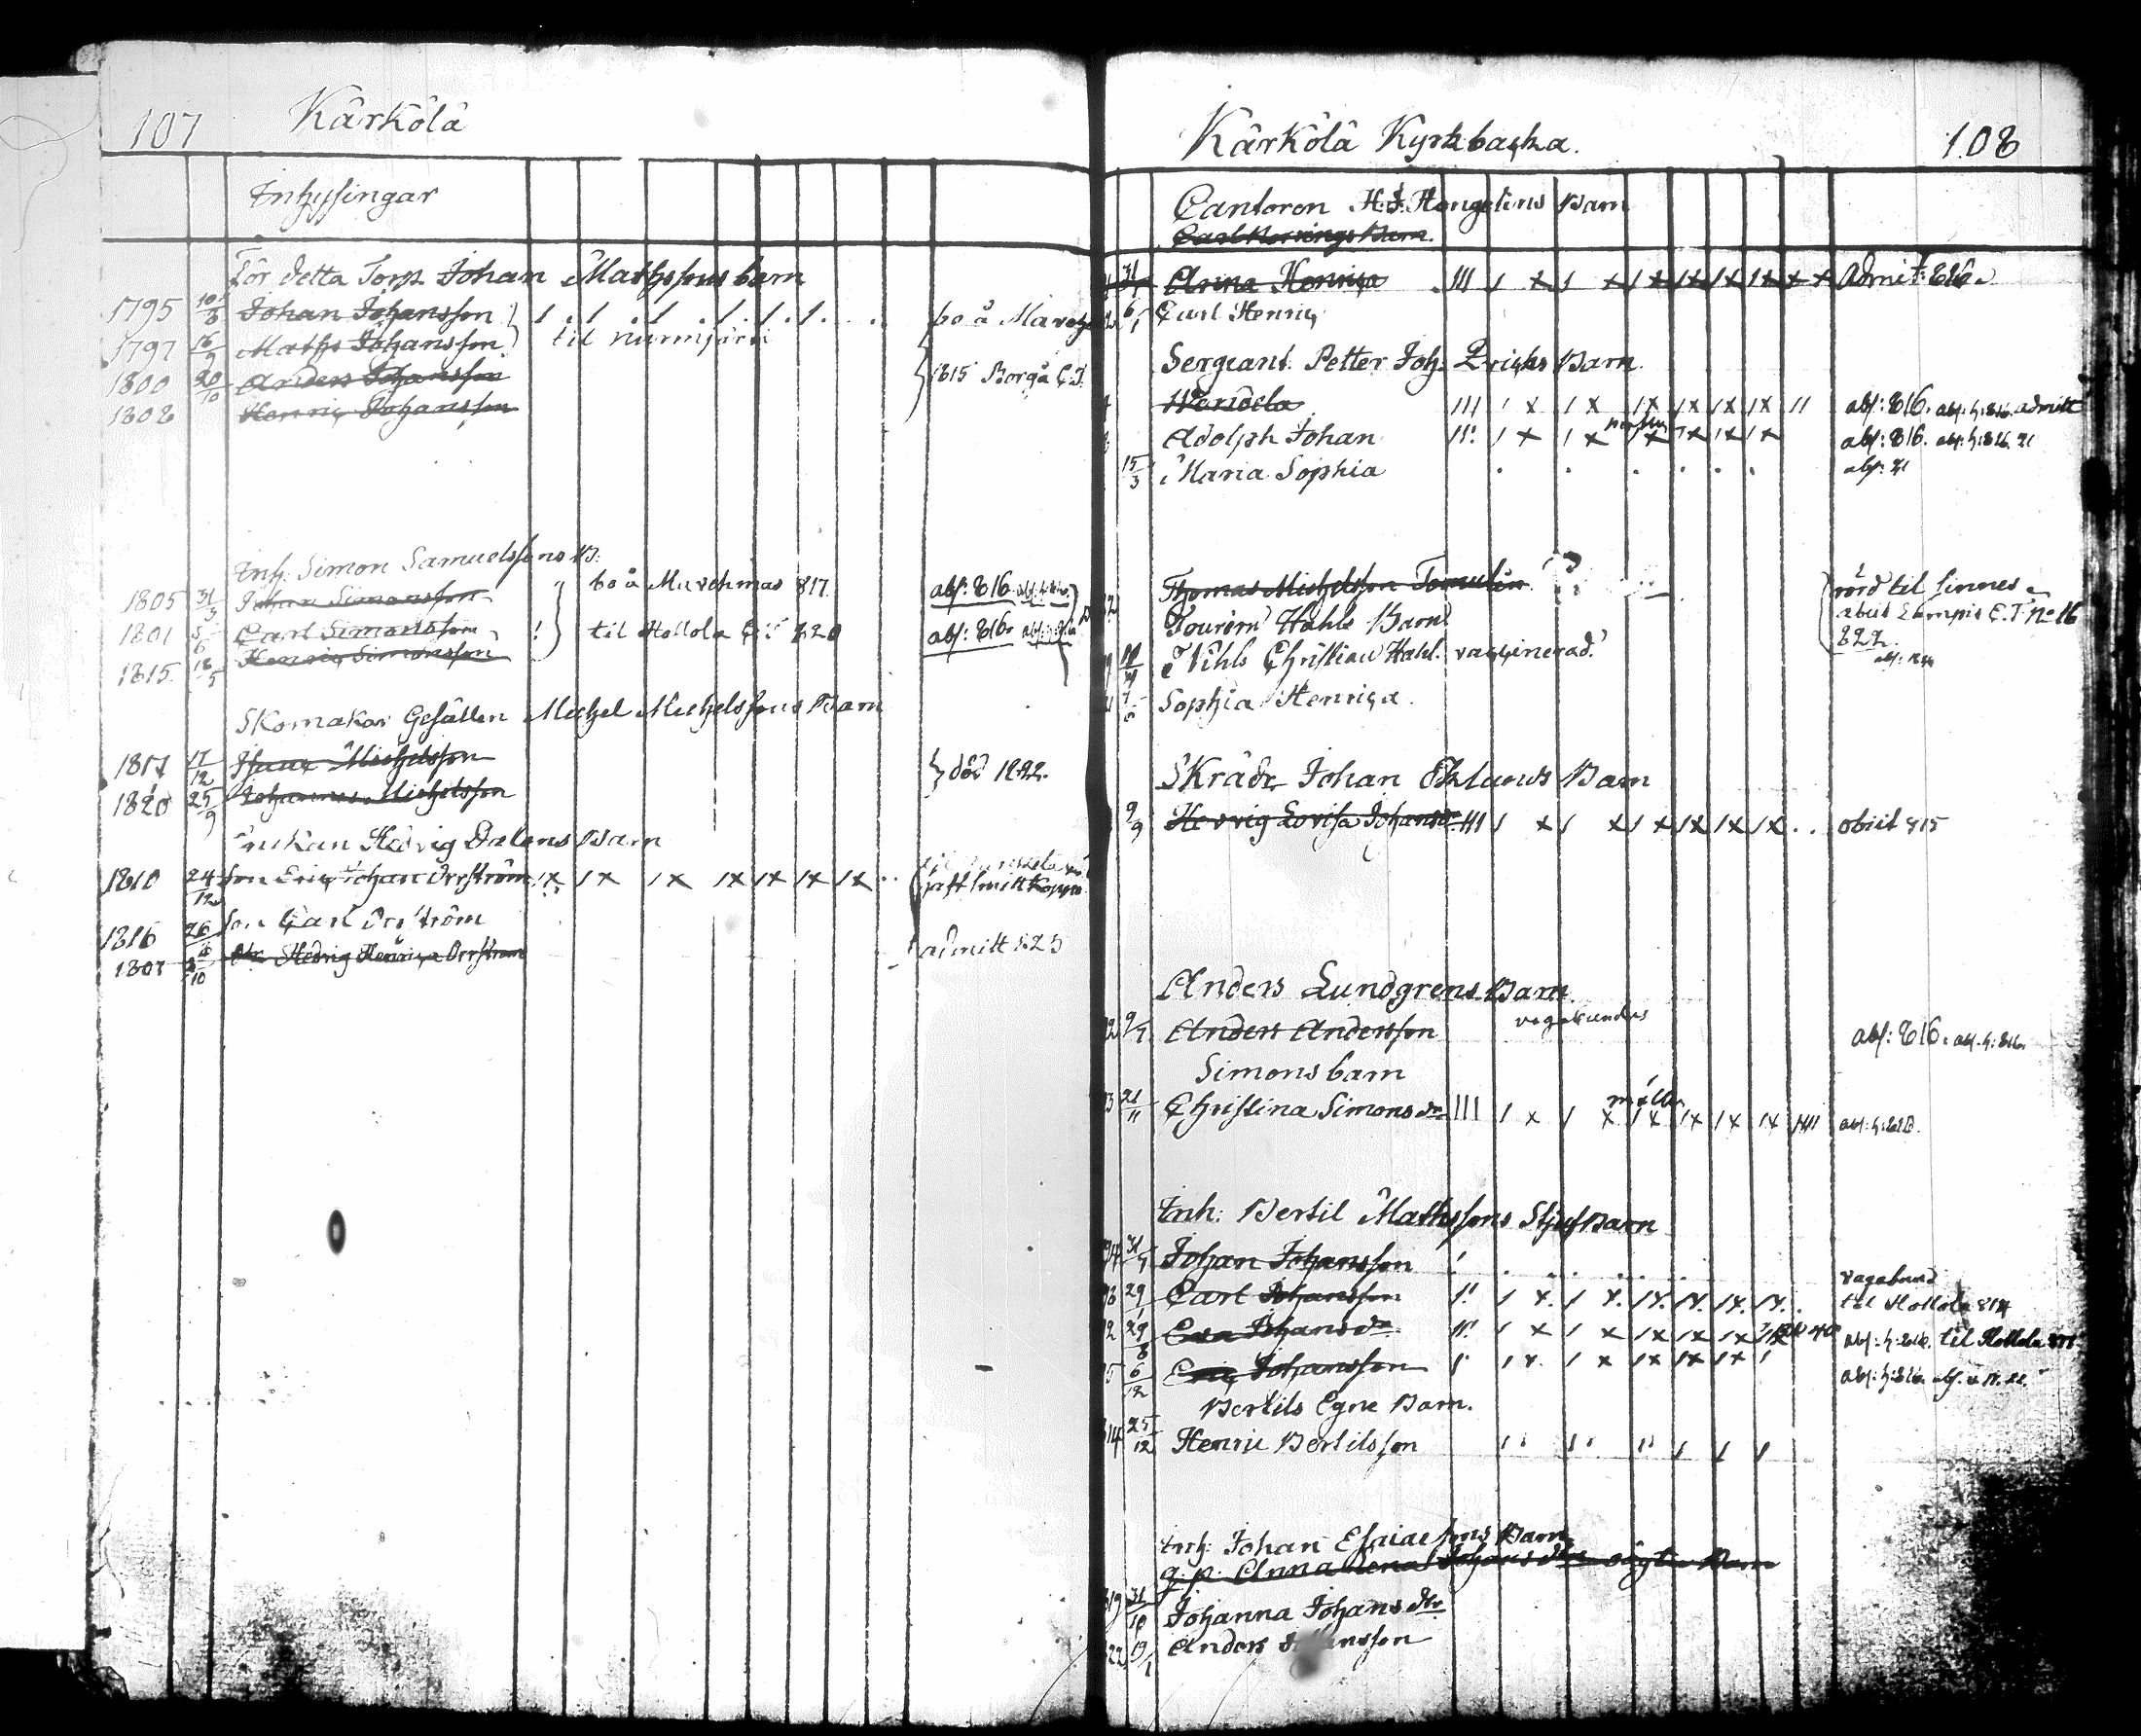 107 Kärkölä
Inhysingar
För detta Torp. Johan Mathssons barn
1795 10/8 Johan Johansson 1 . 1 . 1 . 1 . 1 . 1 . bo å Marvehmas
1797 16/9 Maths Johansson til nurmijärvi
1800 20/10 Anders Johansson 1815 Borgå C.T.
1808 Henric Johansson
Inh: Simon Samuelssons B:
1805 31/3 Johan Simonsson bo å Marvehmas 817. abs: 816.
1801 5/6 Carl Simonsson til Hollola 820 abs: 816.
1815. 18/5 Henric Simonsson
Skomakar Gesällen Michel Michelssons Barn
1817 17/12 Michelsson död 1822.
1820 25/9 Johannes Michelsson
Enkan Hedvig Dalens Barn
1810 24/12 son Eric Johan Örrström 1x 1x 1x 1x 1x 1x 1x haft smittkoppor
1816 26 son Carl Örrström
1807 /10 Dr. Hedvig Henrica Örrström admitt 823
Kärkölä Kyrkbacka. 108
Cantoren H. J. Hongelins Barn
31 Anna Henrica III 1 x 1 x 1x 1x 1x 1x x x admit: 816.
6/1 Carl Henric
Sergeant. Petter Joh. Brichs Barn.
Wendela III 1 x 1 x 1x 1x 1x 1x 11 abs: 816. abs: h: 816. admitt
Adolph Johan 1 x 1 x 1x 1x 1x 1x abs: 816. abs: h: 816. 21
15/3 Maria Sophia . . . . . . abs: 21
Thomas Michelsson rörd til sinnes
Hahls Barn abiit Lampis C.T. No 16
Nihls Christian Hahl. vaccinerad. 822.
Sophia Henrica.
Skräd. Johan Öhlunds Barn
9/9 Hedvig Lovisa Johansdr III 1 x 1 x 1 x 1x 1x 1x . . obiit 815
Anders Lundgrens Barn.
9/7 Anders Andersson vagabundus abs: 816. abs. h: 816.
Simons barn
21/11 Christina Simonsdr III 1 x 1 x 1x 1x 1x 1x abs: h: 818.
Inh: Bertil Mathssons Stjufbarn
31/7 Johan Johansson vagabund
29/1 Carl Johansson 1 x. 1 x. 1x. 1x. 1x. 1x. til Hollola 814
29/8 Eva Johansdr 1 x 1 x 1x 1x 1x abs: h: 816. til Hollola
6/12 Eric Johansson 1 x. 1 x 1x 1x 1x 1 abs: h: 816.
Bertils Egne Barn.
14 25/12 Henric Bertilsson
Inh: Johan Esaiaesons Barn
q. p. Anna Lena Johansdrs oägta Barn
19 31/10 Johanna Johans dtr
22 19/1 Anders